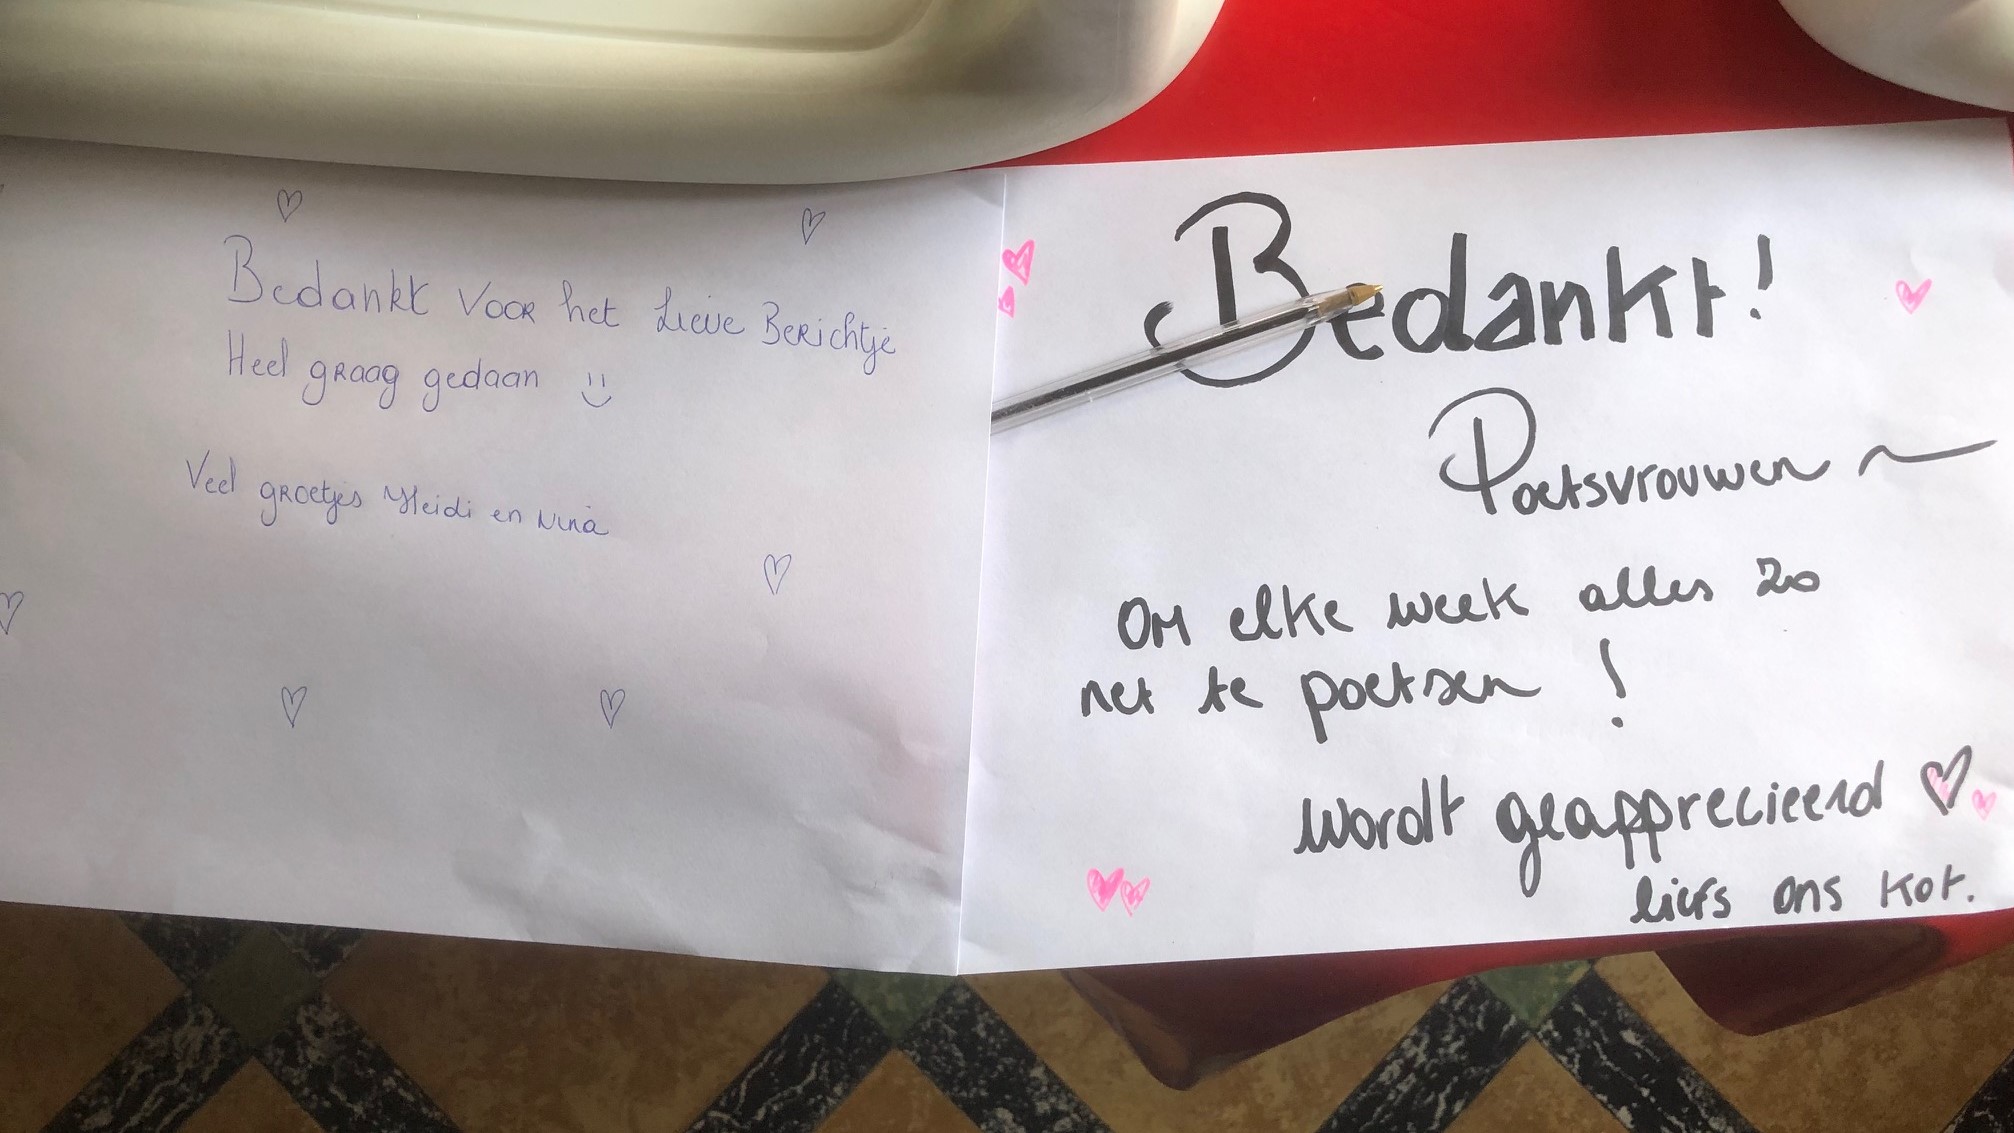 Bedankt voor het Lieve Berichtje
Heel graag gedaan
Veel groetjes Heidi en Nina
Bedankt!
Poetsvrouwen
Om elke week alles zo
net te poetsen !
Wordt geapprecieerd
liefs ons kot.